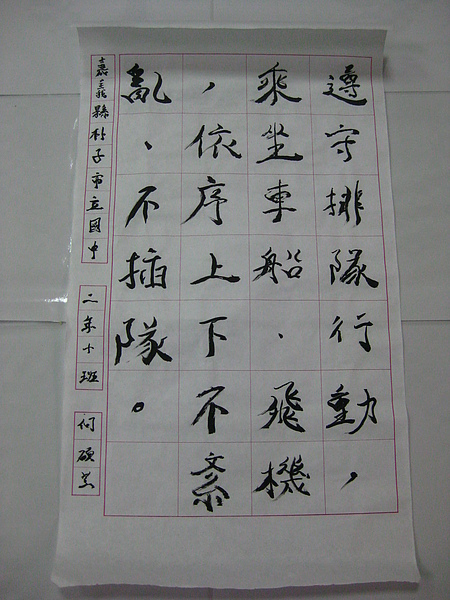 遵守排隊行動，
乘坐車船、飛機
，依序上下不紊
亂、不插隊。
嘉義縣朴子市立國中 二年十班 何碩